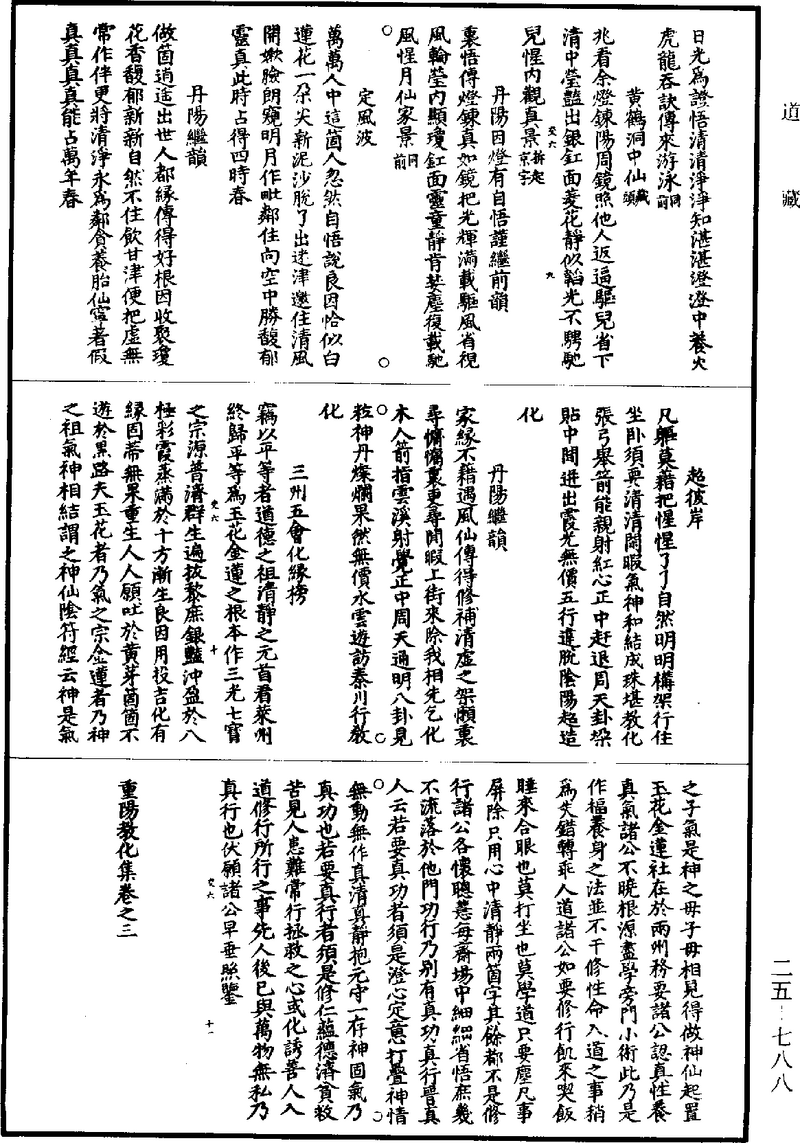 道藏
日光爲證悟清清淨淨知湛湛澄澄中養火
虎龍吞訣傳來游泳同前
黄鶴洞中仙藏頭
兆看余燈錬陽周鏡照他人返逼驅兒省下
清中瑩豔出銀釭面菱花靜似韜光不騁馳
兒惺内觀真景拆起京字
交六
九
丹陽因燈有自悟謹繼前韻
裏悟傳燈錬真如鏡把光輝滿載驅風省視
風輪瑩内顯瓊釭面靈童靜肯装塵復載馳
風惺月仙家景同前
定風波
萬萬人中這箇人忽然自悟說良因恰似白
蓮花一朶尖新泥沙脫了出迷津邀住清風
開嫩臉朗窺明月作毗鄰住向空中勝馥郁
靈真此時占得四時春
丹陽繼韻
做箇逍遥出世人都緣傳得好根因收聚瓊
花香馥郁新新自然不住飲甘津便把虛無
常作伴更將清淨永爲鄰貪養胎仙寧著假
真真真真能占萬年春
超彼岸
凡軀莫藉把惺惺了了自然明明構架行住
坐卧須要清清閑暇氣神和結成珠堪教化
張弓舉箭能親射紅心正中赶退周天卦垛
貼中間迸出霞光無價五行違脫陰陽超造
化
丹陽繼韻
家緣不藉遇風仙傳得修補清虛之架懶裏
尋慵慵裏更尋閑暇上街來除我相先乞化
木人箭指雲溪射覺正中周天過明八卦見
粒神丹燦爛果然無價水雲遊訪秦川行教
化
三州五會化緣榜
竊以平等者道德之祖清靜之元首看萊州
終歸平等爲玉花金蓮之根本作三光七寶
之宗源普濟群生遍拔黎庶銀豔沖盈於八
交六
十
極彩霞蒸滿於十方漸生良因用投吉化有
緣固蒂無果重生人人願吐於黄芽箇箇不
遊於黑路夫玉花者乃氣之宗金蓮者乃神
之祖氣神相結謂之神仙陰符經云神是氣
之子氣是神之母子母相見得做神仙起置
玉花金蓮社在於兩州務要諸公認真性養
真氣諸公不曉根源盡學旁門小術此乃是
作福養身之法並不干修性命入道之事稍
爲失錯轉乖人道諸公如要修行飢來喫飯
睡來合眼也莫打坐也莫學道只要塵凡事
屏除只用心中清靜兩箇字其餘都不是修
行諸公各懷聰慧每齋場中細細省悟庶幾
不流落於他門功行乃别有真功真行晉真
人云若要真功者須是澄心定意打疊神情
無動無作真清真靜抱元守一存神固氣乃
真功也若要真行者須是修仁藴德濟貧救
苦見人患難常行拯救之心或化誘善人入
道修行所行之事先人後己與萬物無私乃
真行也伏願諸公早垂照鑒
交六
十一
重陽教化集卷之三
二五-七八八